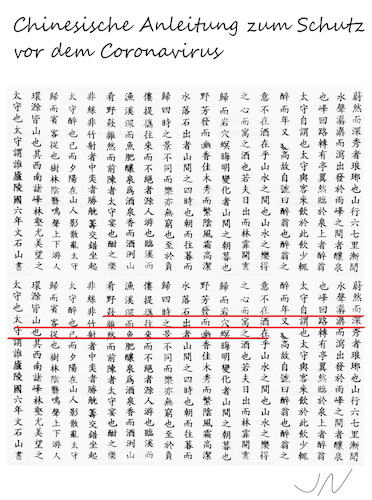 Chinesische Anleitung zum Schutz
vor dem Coronavirus
蔚然而深秀者琅琊也山行六七里漸聞
水聲潺潺而瀉出於兩峰之間者釀泉
也峰回路轉有亭翼然於泉上者醉翁
太守自謂也太守與客來飲於此飲少輒
醉而年又高故自號曰醉翁也醉翁之
意不在酒在乎山水之間也山水之樂得
之心而寓之酒也若夫日出而林霏開
歸而岩穴暝晦明變化者山間之朝暮也
野芳發而幽香佳木秀而繁陰風霜高潔
水落石出者山間之四時也朝而往暮而
歸四時之景不同而樂亦無窮也至於負
僂提攜往來而不絕者游人也臨溪而
漁溪深而魚肥釀泉為酒泉香而酒洌山
肴野蔌雜然而前陳者太守宴也酣之樂
非絲非竹射者中奕者勝觥籌交錯坐起
太守醉也已而夕陽在山人影散亂太守
歸而賓客從也樹林陰翳鳴聲上下游人
環滁皆山也其西南諸峰林壑尤美望之
太守也太守謂誰廬陵國六年文石山書
蔚然而深秀者琅琊也山行六七里漸聞
水聲潺潺而瀉出於兩峰之間者釀泉
也峰回路轉有亭翼然於泉上者醉翁
太守自謂也太守與客來飲於此飲少輒
醉而年又高故自號曰醉翁也醉翁之
意不在酒在乎山水之間也山水之樂得
之心而寓之酒也若夫日出而林霏開
歸而岩穴暝晦明變化者山間之朝暮也
野芳發而幽香佳木秀而繁陰風霜高潔
水落石出者山間之四時也朝而往暮而
歸四時之景不同而樂亦無窮也至於負
僂提攜往來而不絕者游人也臨溪而
漁溪深而魚肥釀泉為酒泉香而酒洌山
肴野蔌雜然而前陳者太守宴也酣之樂
非絲非竹射者中奕者勝觥籌交錯坐起
太守醉也已而夕陽在山人影散亂太守
歸而賓客從也樹林陰翳鳴聲上下游人
環滁皆山也其西南諸峰林壑尤美望之
太守也太守謂誰廬陵國六年文石山書
JN